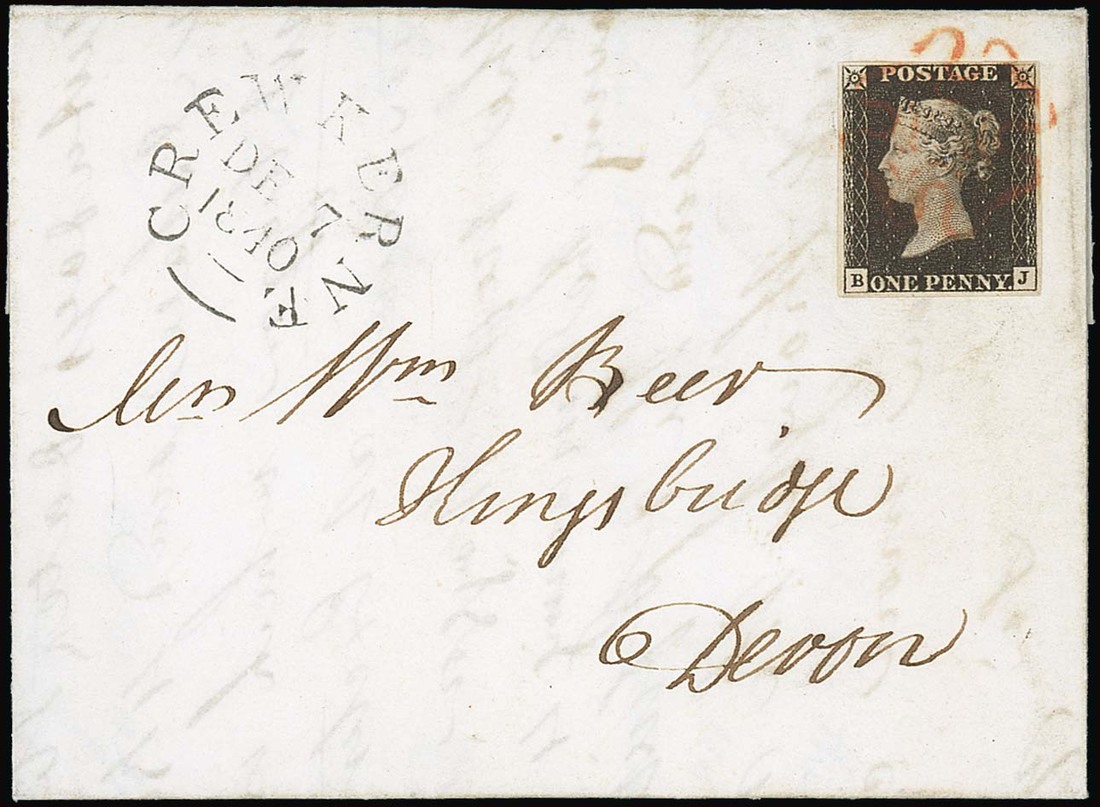 CREWKERNE
DE 7
1840
POSTAGE
B ONE PENNY J
Wm Beer
Kingsbridge
Devon